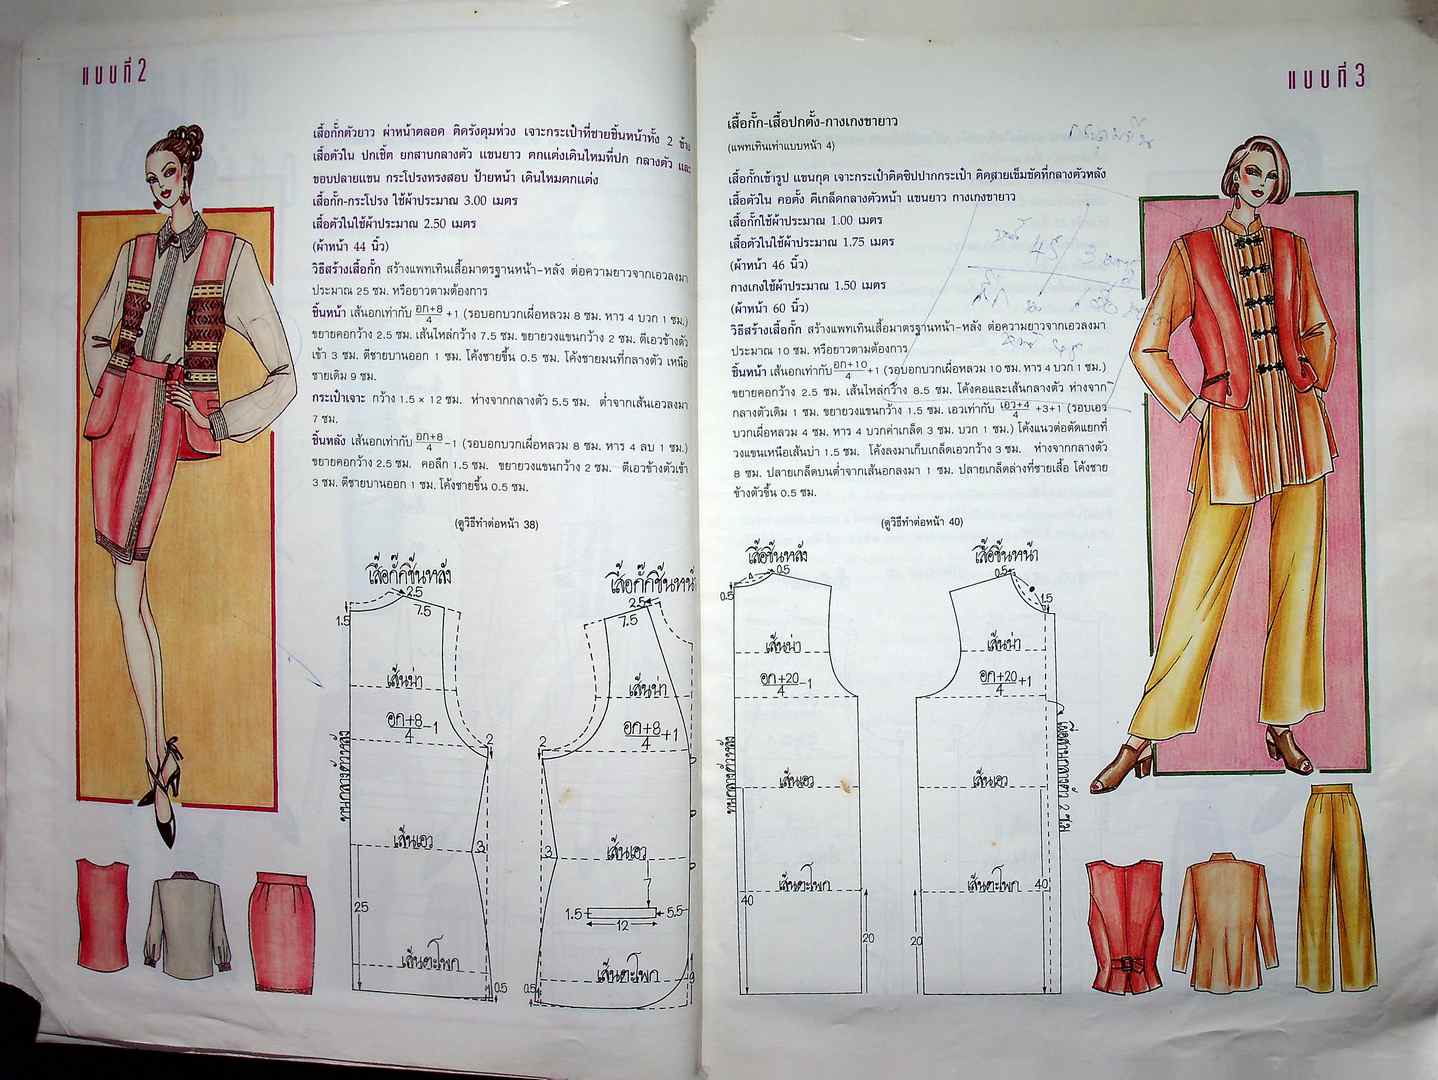 แบบที่ 2
เสื้อกั๊กตัวยาว ผ่าหน้าตลอด ติดรังดุมห่วง เจาะกระเป๋าที่ชายชิ้นหน้าทั้ง 2 ข้าง
เสื้อตัวใน ปกเชิ้ต ยกสาบกลางตัว แขนยาว ตกแต่งเดินไหมที่ปก กลางตัว และ
ขอบปลายแขน กระโปรงทรงสอบ ป้ายหน้า เดินไหมตกแต่ง
เสื้อกั๊ก-กระโปรง ใช้ผ้าประมาณ 3.00 เมตร
เสื้อตัวในใช้ผ้าประมาณ 2.50 เมตร
(ผ้าหน้า 44 นิ้ว)
วิธีสร้างเสื้อกั๊ก สร้างแพทเทินเสื้อมาตรฐานหน้า-หลัง ต่อความยาวจากเอวลงมา
ประมาณ 25 ซม. หรือยาวตามต้องการ
ชิ้นหน้า เส้นอกเท่ากับ อก+8/4 +1 (รอบอกบวกเผื่อหลวม 8 ซม. หาร 4 บวก 1 ซม.)
ขยายคอกว้าง 2.5 ซม. เส้นไหล่กว้าง 7.5 ซม. ขยายวงแขนกว้าง 2 ซม. ตีเอวข้างตัว
เข้า 3 ซม. ตีชายบานออก 1 ซม. โค้งชายขึ้น 0.5 ซม. โค้งชายมนที่กลางตัว เหนือ
ชายเดิม 9 ซม.
กระเป๋าเจาะ กว้าง 1.5 × 12 ซม. ห่างจากกลางตัว 5.5 ซม. ต่ำจากเส้นเอวลงมา
7 ซม.
ชิ้นหลัง เส้นอกเท่ากับ อก+8/4 -1 (รอบอกบวกเผื่อหลวม 8 ซม. หาร 4 ลบ 1 ซม.)
ขยายคอกว้าง 2.5 ซม. คอลึก 1.5 ซม. ขยายวงแขนกว้าง 2 ซม. ตีเอวข้างตัวเข้า
3 ซม. ตีชายบานออก 1 ซม. โค้งชายขึ้น 0.5 ซม.
(ดูวิธีทำต่อหน้า 38)
เสื้อกั๊กชิ้นหลัง
2.5
7.5
1.5
เส้นบ่า
อก+8/4 -1
2
ทบกลางตัวหลัง
เส้นเอว
3
25
เส้นตะโพก
0.5
เสื้อกั๊กชิ้นหน้า
2.5
7.5
เส้นบ่า
อก+8/4 +1
2
เส้นเอว
3
7
1.5
12
5.5
เส้นตะโพก
0.5
9
แบบที่ 3
เสื้อกั๊ก-เสื้อปกตั้ง-กางเกงขายาว
(แพทเทินเท่าแบบหน้า 4)
เสื้อกั๊กเข้ารูป แขนกุด เจาะกระเป๋าติดซิปปากกระเป๋า ติดสายเข็มขัดที่กลางตัวหลัง
เสื้อตัวใน คอตั้ง ตีเกล็ดกลางตัวหน้า แขนยาว กางเกงขายาว
เสื้อกั๊กใช้ผ้าประมาณ 1.00 เมตร
เสื้อตัวในใช้ผ้าประมาณ 1.75 เมตร
(ผ้าหน้า 46 นิ้ว)
กางเกงใช้ผ้าประมาณ 1.50 เมตร
(ผ้าหน้า 60 นิ้ว)
วิธีสร้างเสื้อกั๊ก สร้างแพทเทินเสื้อมาตรฐานหน้า-หลัง ต่อความยาวจากเอวลงมา
ประมาณ 10 ซม. หรือยาวตามต้องการ
ชิ้นหน้า เส้นอกเท่ากับ อก+10/4 +1 (รอบอกบวกเผื่อหลวม 10 ซม. หาร 4 บวก 1 ซม.)
ขยายคอกว้าง 2.5 ซม. เส้นไหล่กว้าง 8.5 ซม. โค้งคอและเส้นกลางตัว ห่างจาก
กลางตัวเดิม 1 ซม. ขยายวงแขนกว้าง 1.5 ซม. เอวเท่ากับ เอว+4/4 +3+1 (รอบเอว
บวกเผื่อหลวม 4 ซม. หาร 4 บวกค่าเกล็ด 3 ซม. บวก 1 ซม.) โค้งแนวต่อตัดแยกที่
วงแขนเหนือเส้นบ่า 1.5 ซม. โค้งลงมาเก็บเกล็ดเอวกว้าง 3 ซม. ห่างจากกลางตัว
8 ซม. ปลายเกล็ดบนต่ำจากเส้นอกลงมา 1 ซม. ปลายเกล็ดล่างที่ชายเสื้อ โค้งชาย
ข้างตัวขึ้น 0.5 ซม.
(ดูวิธีทำต่อหน้า 40)
เสื้อชิ้นหลัง
0.5
0.5
เส้นบ่า
อก+20/4 -1
ทบกลางตัวหลัง
เส้นเอว
เส้นตะโพก
40
20
เสื้อชิ้นหน้า
0.5
1.5
เส้นบ่า
อก+20/4 +1
เส้นเอว
เส้นตะโพก
40
20
45
3